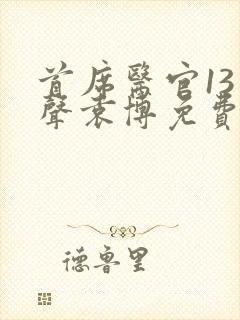 首席醫官13
聲袁博免費
德魯里